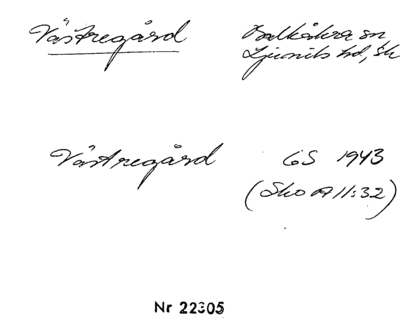 Västregård Balkåkra sn
Ljunits hd, Sk
Västregård GS 1943
(Sko A 11:32)
Nr 22305